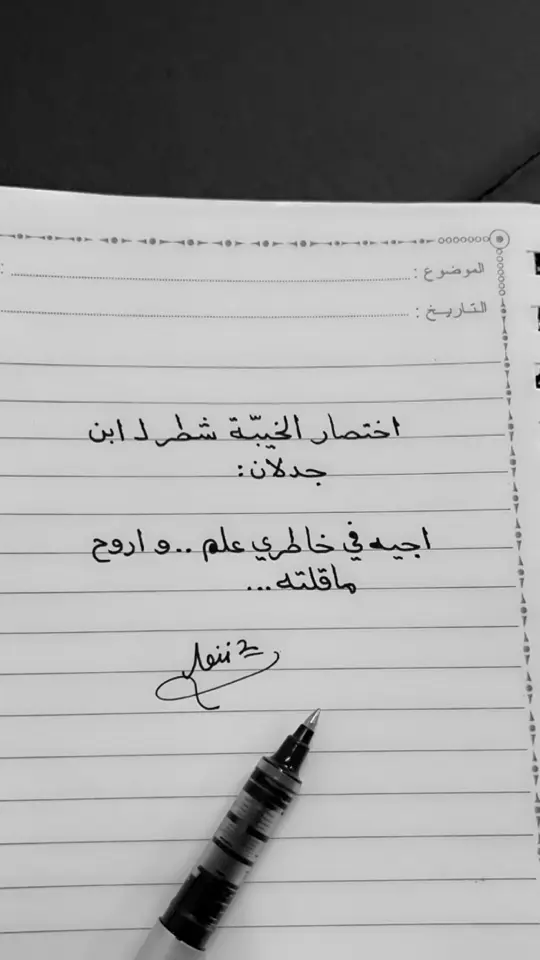 الموضوع :
التاريخ :
اختصار الخيبّة شطر لـ ابن
جدلان :
اجيه في خاطري علم .. و اروح
ماقلته ...